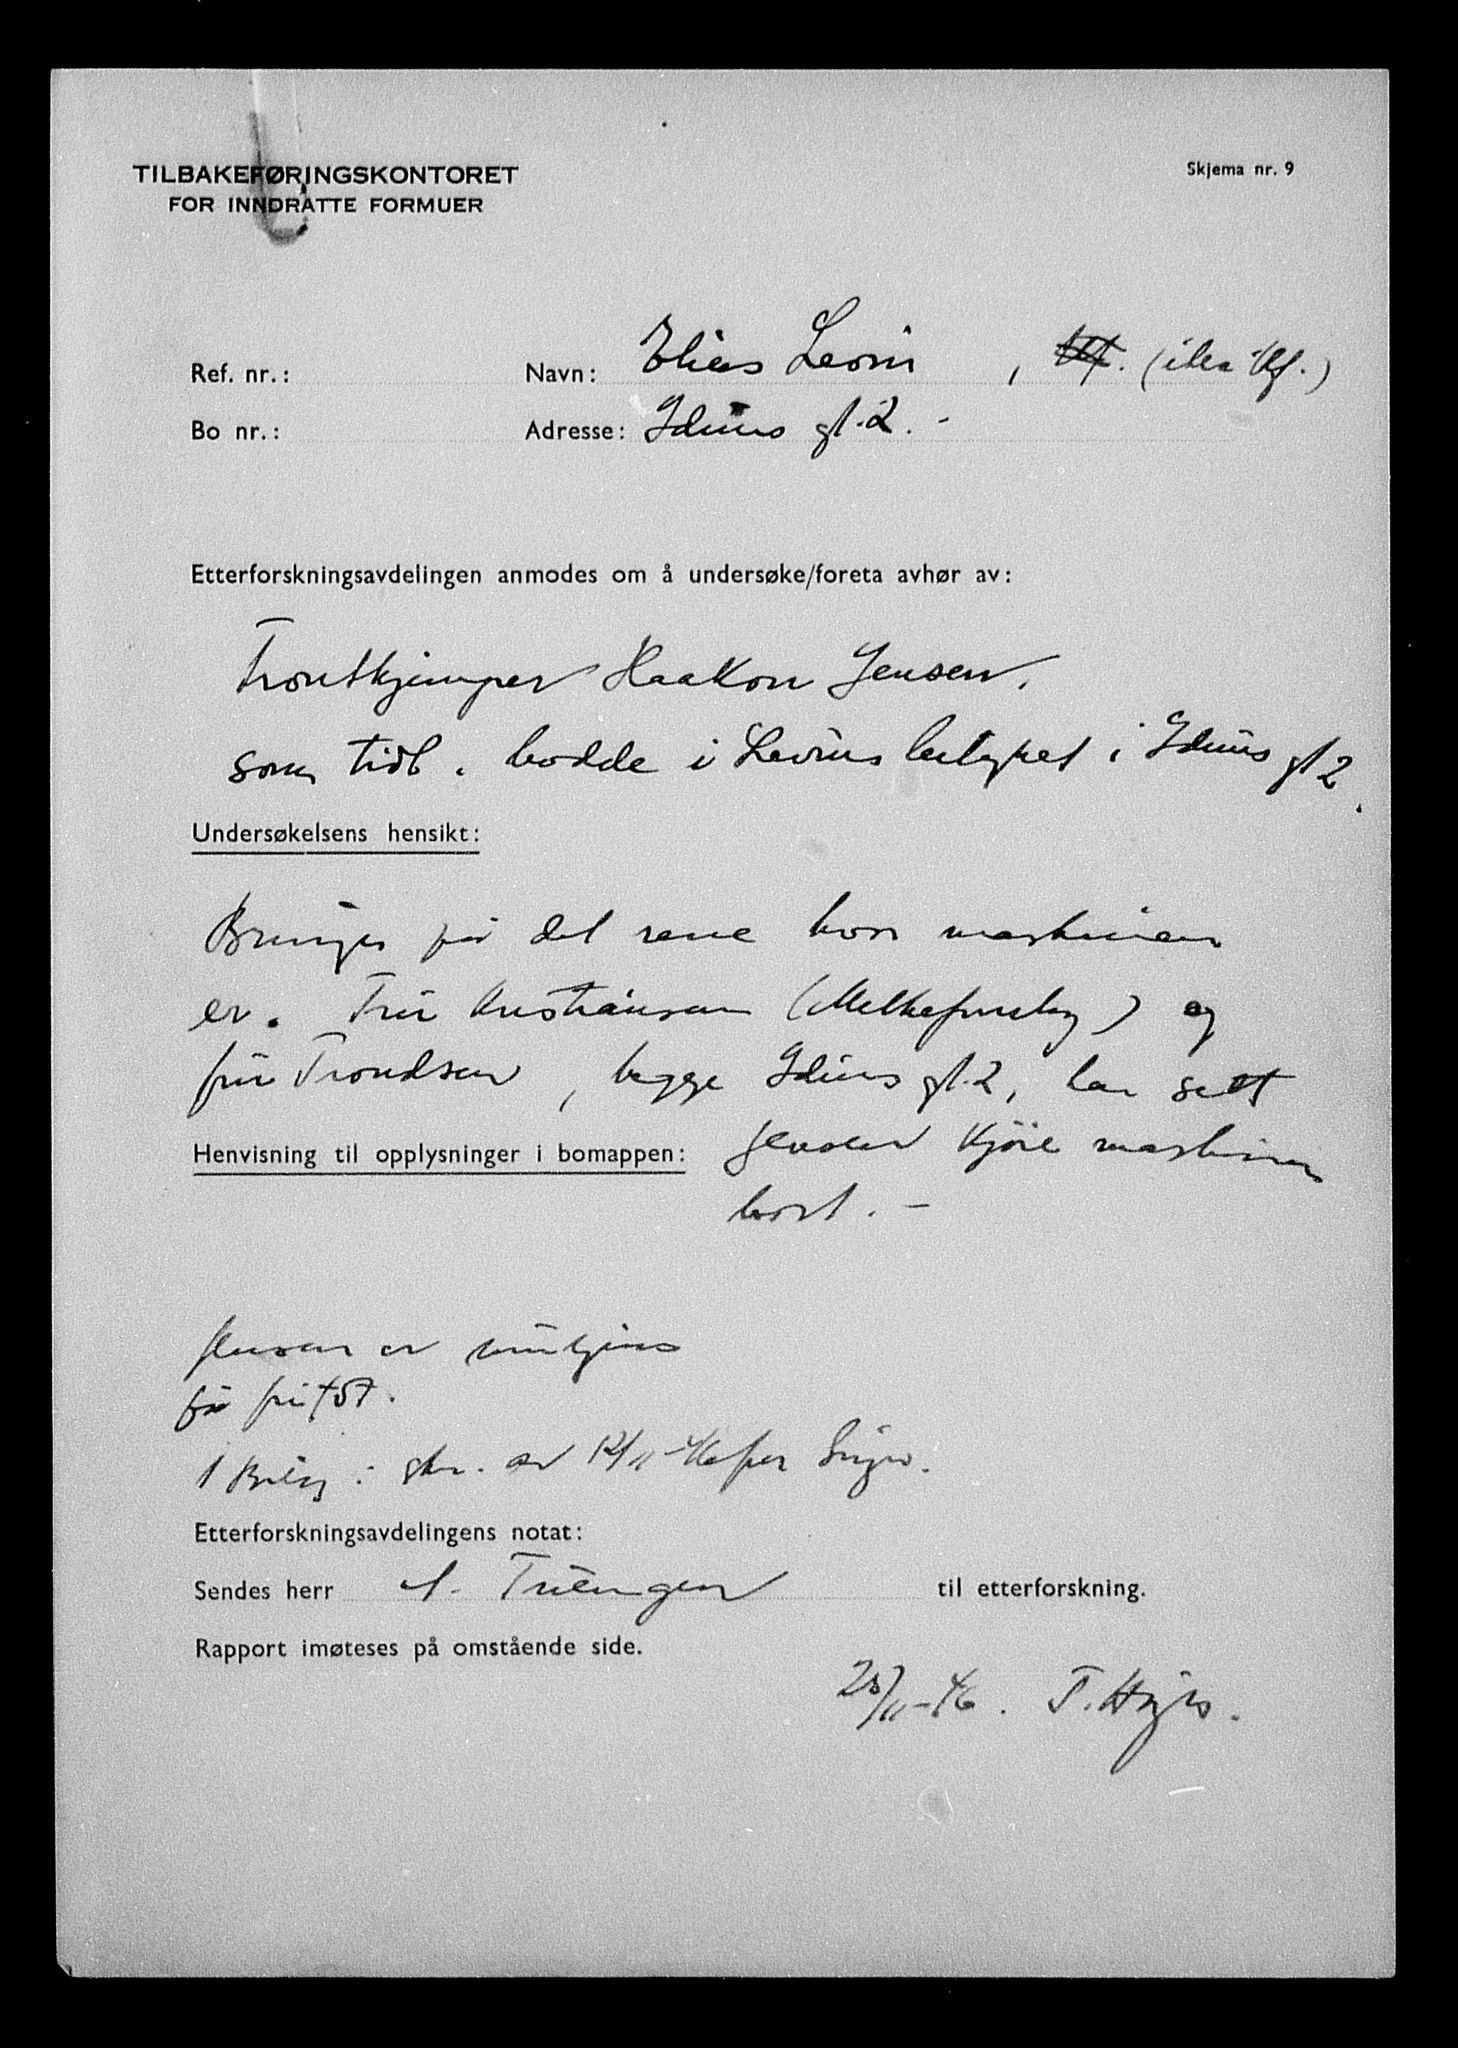 TILBAKEFØRINGSKONTORET
FOR INNDRATTE FORMUER
Skjema nr. 9
Ref. nr.: Navn: Elias Levin, (ikke Kf.)
Bo nr.: Adresse: Iduns gt. 2. -
Etterforskningsavdelingen anmodes om å undersøke/foreta avhør av:
Frontkjemper Haakon Jensen,
som tidl. bodde i Levins leilighet i Iduns gt 2.
Undersøkelsens hensikt:
Bringes på det rene hvor maskinen
er. Fru Kristiansen (Melkeforsyng) og
fru Trondsen, begge Iduns gt. 2, har sett
Henvisning til opplysninger i bomappen: Jensen kjøre maskinen
bort. -
Jensen er
på fri fot.
1 Bilag: skr. av 12/11-46 fra
Etterforskningsavdelingens notat:
Sendes herr til etterforskning.
Rapport imøteses på omstående side.
/11-46. T.